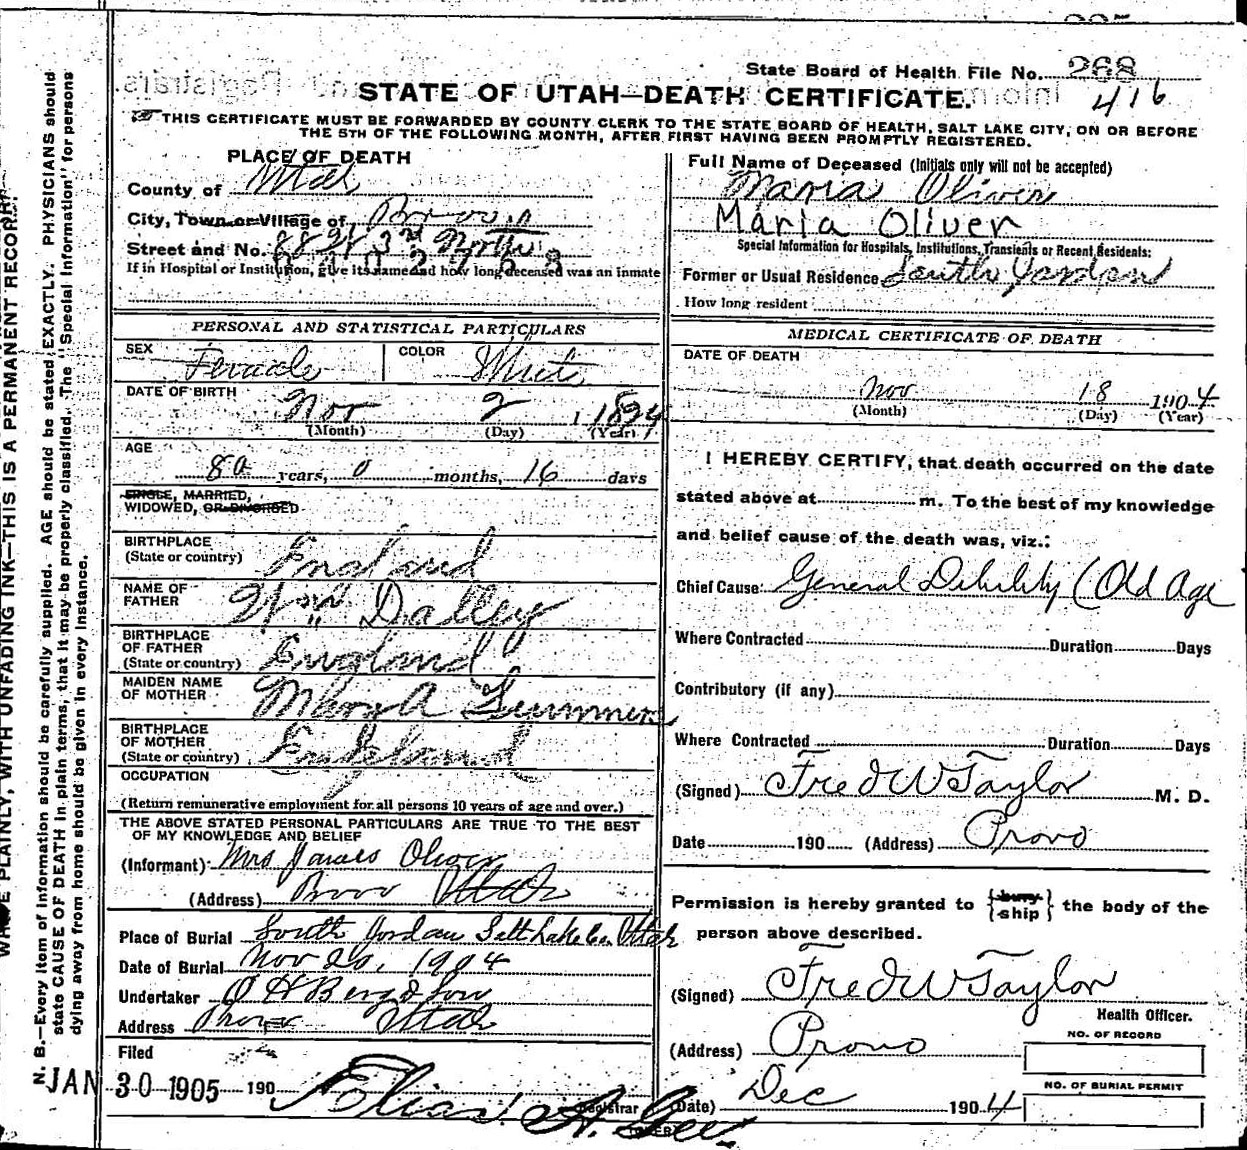 State Board of Health File No. 268
416
STATE OF UTAH—DEATH CERTIFICATE.
THIS CERTIFICATE MUST BE FORWARDED BY COUNTY CLERK TO THE STATE BOARD OF HEALTH, SALT LAKE CITY, ON OR BEFORE
THE 5TH OF THE FOLLOWING MONTH, AFTER FIRST HAVING BEEN PROMPTLY REGISTERED.
PLACE OF DEATH
County of Utah
City, Town or Village of Provo
Street and No. 3rd North
If in Hospital or Institution, give its name and how long deceased was an inmate
Full Name of Deceased (Initials only will not be accepted)
Maria Oliver
Maria Oliver
Special Information for Hospitals, Institutions, Transients or Recent Residents:
Former or Usual Residence South Jordan
How long resident
PERSONAL AND STATISTICAL PARTICULARS
SEX Female COLOR White
DATE OF BIRTH Nov 2 1824
(Month) (Day) (Year)
AGE
80 years, 0 months, 16 days
SINGLE, MARRIED,
WIDOWED, OR DIVORCED
BIRTHPLACE
(State or country) England
NAME OF
FATHER Wm Dalley
BIRTHPLACE
OF FATHER
(State or country) England
MAIDEN NAME
OF MOTHER Mary A
BIRTHPLACE
OF MOTHER
(State or country) England
OCCUPATION
(Return remunerative employment for all persons 10 years of age and over.)
THE ABOVE STATED PERSONAL PARTICULARS ARE TRUE TO THE BEST
OF MY KNOWLEDGE AND BELIEF
(Informant) Mrs James Oliver
(Address) Provo Utah
Place of Burial South Jordan Salt Lake Co. Utah
Date of Burial Nov 20, 1904
Undertaker O H Berg & Son
Address Provo Utah
Filed
JAN 30 1905 190
Elias A. Gee.
Registrar
MEDICAL CERTIFICATE OF DEATH
DATE OF DEATH
Nov 18 1904
(Month) (Day) (Year)
I HEREBY CERTIFY, that death occurred on the date
stated above at m. To the best of my knowledge
and belief cause of the death was, viz.:
Chief Cause: General Debility (Old Age
Where Contracted Duration Days
Contributory (if any)
Where Contracted Duration Days
(Signed) Fred W Taylor M. D.
Date 190 (Address) Provo
Permission is hereby granted to {bury ship} the body of the
person above described.
(Signed) Fred W Taylor
Health Officer.
(Address) Provo
NO. OF RECORD
NO. OF BURIAL PERMIT
(Date) Dec 1904
N. B.—Every item of information should be carefully supplied. AGE should be stated EXACTLY. PHYSICIANS should
state CAUSE OF DEATH in plain terms, that it may be properly classified. The "Special Information" for persons
dying away from home should be given in every instance.
PLAINLY, WITH UNFADING INK—THIS IS A PERMANENT RECORD.